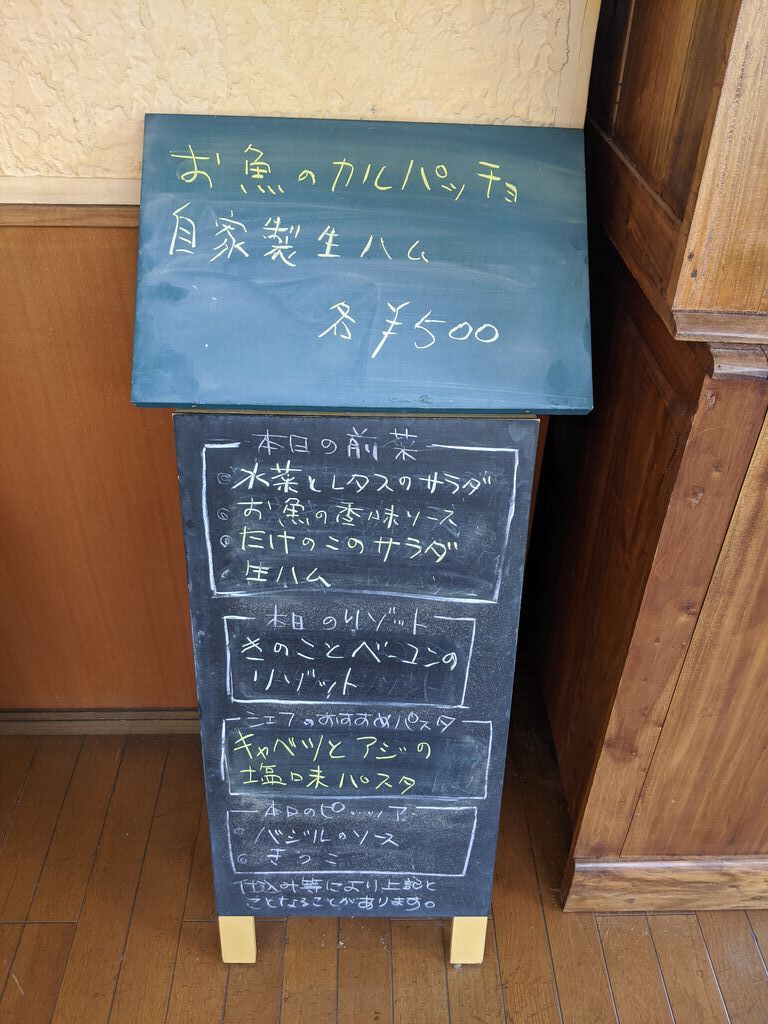 お魚のカルパッチョ
自家製生ハム
各¥500
本日の前菜
水菜とレタスのサラダ
お魚の香味ソース
たけのこのサラダ
生ハム
本日のリゾット
きのことベーコンの
リゾット
シェフのおすすめパスタ
キャベツとアジの
塩味パスタ
本日のピッツァ
バジルのソース
きのこ
仕込み等により上記と
ことなることがあります。